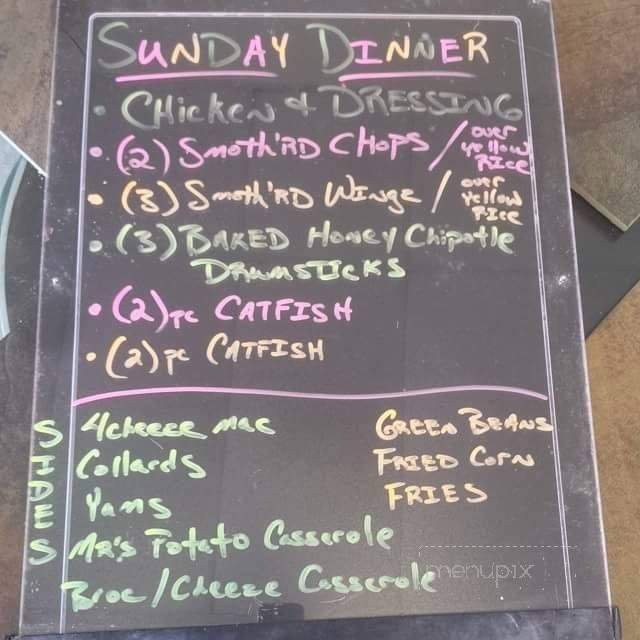 SUNDAY DINNER
• CHicKeN & DRESSING
• (2) Smoth'RD CHOPS / over yellow Rice
• (3) Smoth'RD Wings / over yellow Rice
• (3) BAKED Honey Chipotle
DRumSTICKS
• (2) pc CATFISH
• (2) pc CATFISH
SIDES
4cheese mac
Collards
Yams
MR's Potato Casserole
Broc/Cheese Casserole
GREEN BEANS
FRIED CORN
FRIES
menupix